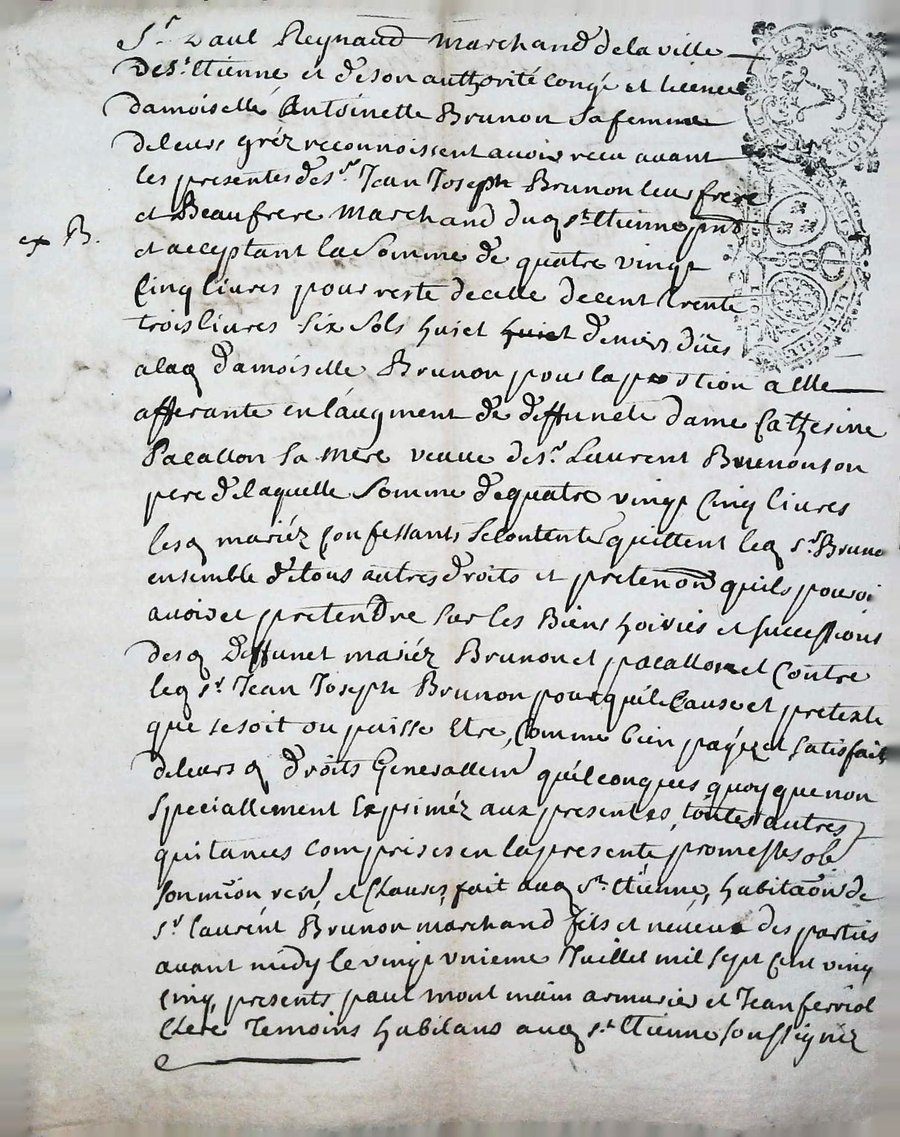 Sr. Paul Reynaud marchand de la ville
de St. Etienne et de son authorité congé et licence
damoiselle Antoinette Brunon sa femme
de leurs gréz reconnoissent avoir recu avant
les presentes de Sr. Jean Joseph Brunon leur frere
et Beaufrere marchand dud St. Etienne pnt
et acceptant la Somme de quatre vingt
Cinq livres pour reste de celle de cent trente
trois livres six sols huict huict deniers dües
alad damoiselle Brunon pour la portion a Elle
afferante en l'augment de deffuncte dame Catherine
Pacallon sa mere veuve de Sr. Laurent Brunon son
pere de laquelle Somme de quatre vingt Cinq livres
lesd mariéz Confessants se contenter quittent led Sr. Brunon
ensemble de tous autres droits et pretenõn quils pouvoi
avoir et pretendre sur les Biens hoiries et successions
desd deffunct mariéz Brunon et pacallon et Contre
led Sr. Jean Joseph Brunon pour quél Cause et pretexte
que se soit ou puisse Etre, Comme bien payéz et satisfait
de leurs d droits Generallem quélconques quoy que non
speciallement Expriméz aux presentes, toutes autres
quitances comprises en la presente promesses ob
soumiõn ren, et clauses, fait aud St. Etienne, habitaõn de
Sr. Laurent Brunon marchand fils et neveux des parties
avant midy le vingt vnieme Juillet mil sept cent vingt
Cinq, presents paul mont main armurier et Jean ferriol
Clerc Temoins habitans aud St. Etienne soussignéz
ex B.